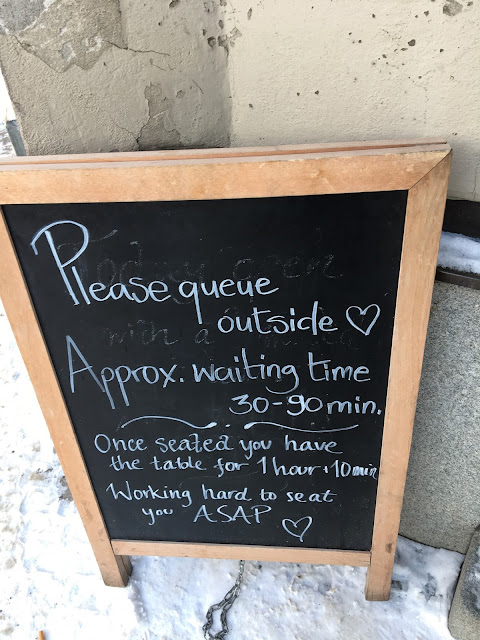 Please queue
outside ♡
Approx. waiting time
30-90 min.
Once seated you have
the table for 1 hour & 10 min
Working hard to seat
you ASAP ♡